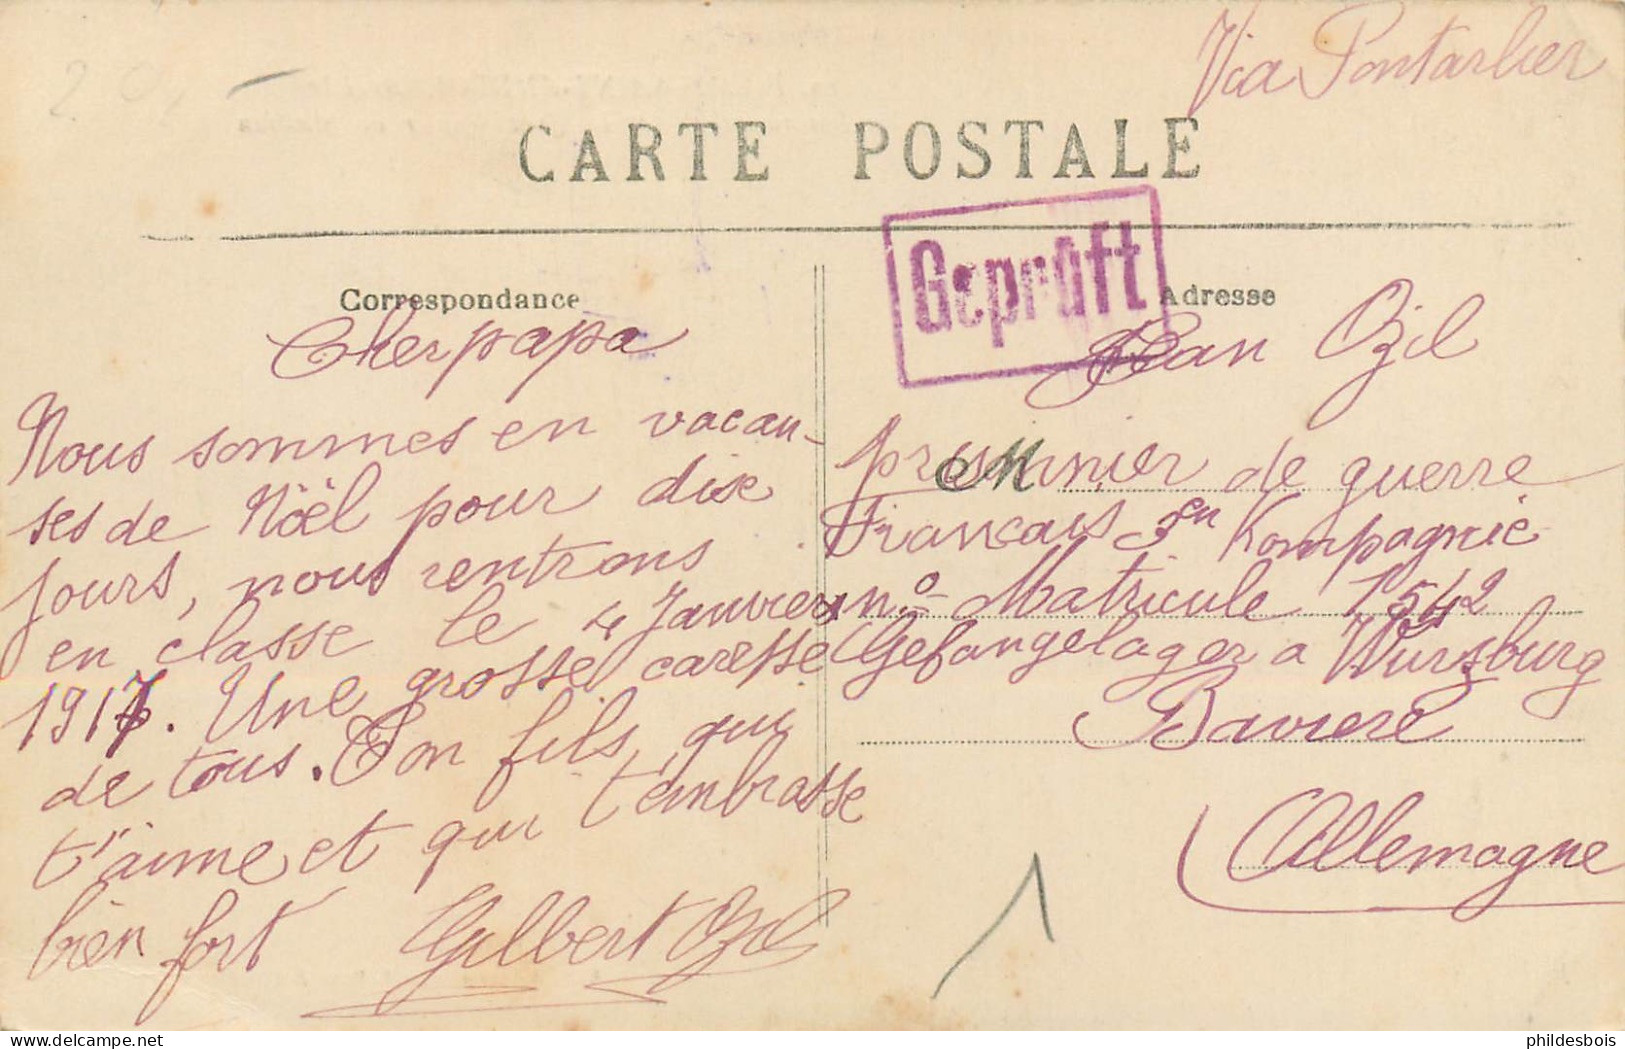 Via Pontarlier
CARTE POSTALE
Geprüft
Correspondance
Cher papa
Nous sommes en vacan-
ses de Nöel pour dixe
jours, nous rentrons
en classe le 4 Janvier
1917. Une grosse caresse
de tous. Ton fils, qui
t'aime et qui t'embrasse
bien fort Gilbert Ozil
Adresse
Jean Ozil
prisonnier de guerre
Francais 5en Kompagnie
n° Matricule 1542
Gefangelager a Wurzburg
Baviere
Allemagne
M
1
phildesbois